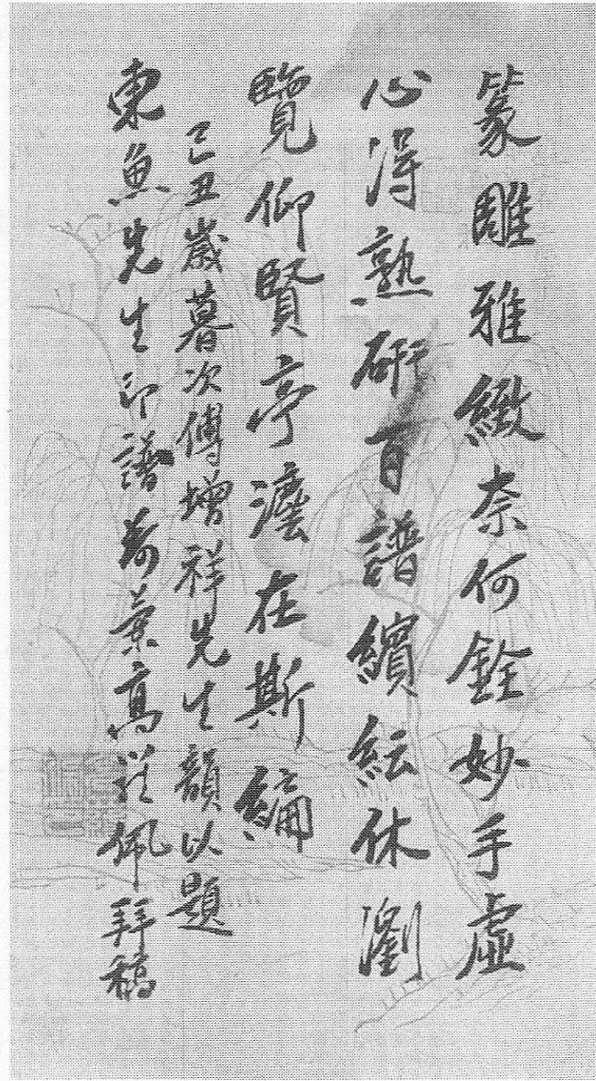 篆雕雅緻奈何銓妙手虛
心得熟研百譜繽紜休瀏
覽仰賢亭灋在斯編
己丑歲暮次傅增祥先生韻以題
東魚先生印譜高佩拜稿